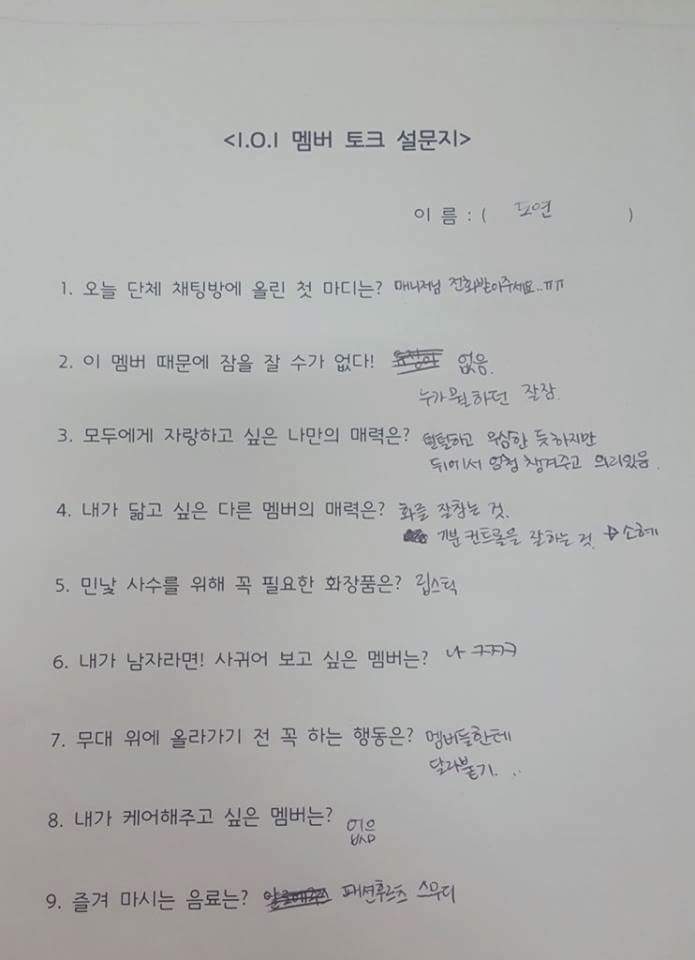 <I.O.I 멤버 토크 설문지>
이 름 : ( 도연 )
1. 오늘 단체 채팅방에 올린 첫 마디는? 매니저님 전화받아주세요..ㅠㅠ
2. 이 멤버 때문에 잠을 잘 수가 없다! 없음.
누가 뭘하던 잘잠.
3. 모두에게 자랑하고 싶은 나만의 매력은? 털털하고 무심한 듯하지만
뒤에서 엄청 챙겨주고 의리있음.
4. 내가 닮고 싶은 다른 멤버의 매력은? 화를 잘참는 것.
기분 컨트롤을 잘하는 것. → 소혜
5. 민낯 사수를 위해 꼭 필요한 화장품은? 립스틱
6. 내가 남자라면! 사귀어 보고 싶은 멤버는? 나 ㅋㅋㅋㅋ
7. 무대 위에 올라가기 전 꼭 하는 행동은? 멤버들한테
달라붙기. ..
8. 내가 케어해주고 싶은 멤버는? 없음
9. 즐겨 마시는 음료는? 패션후르츠 스무디